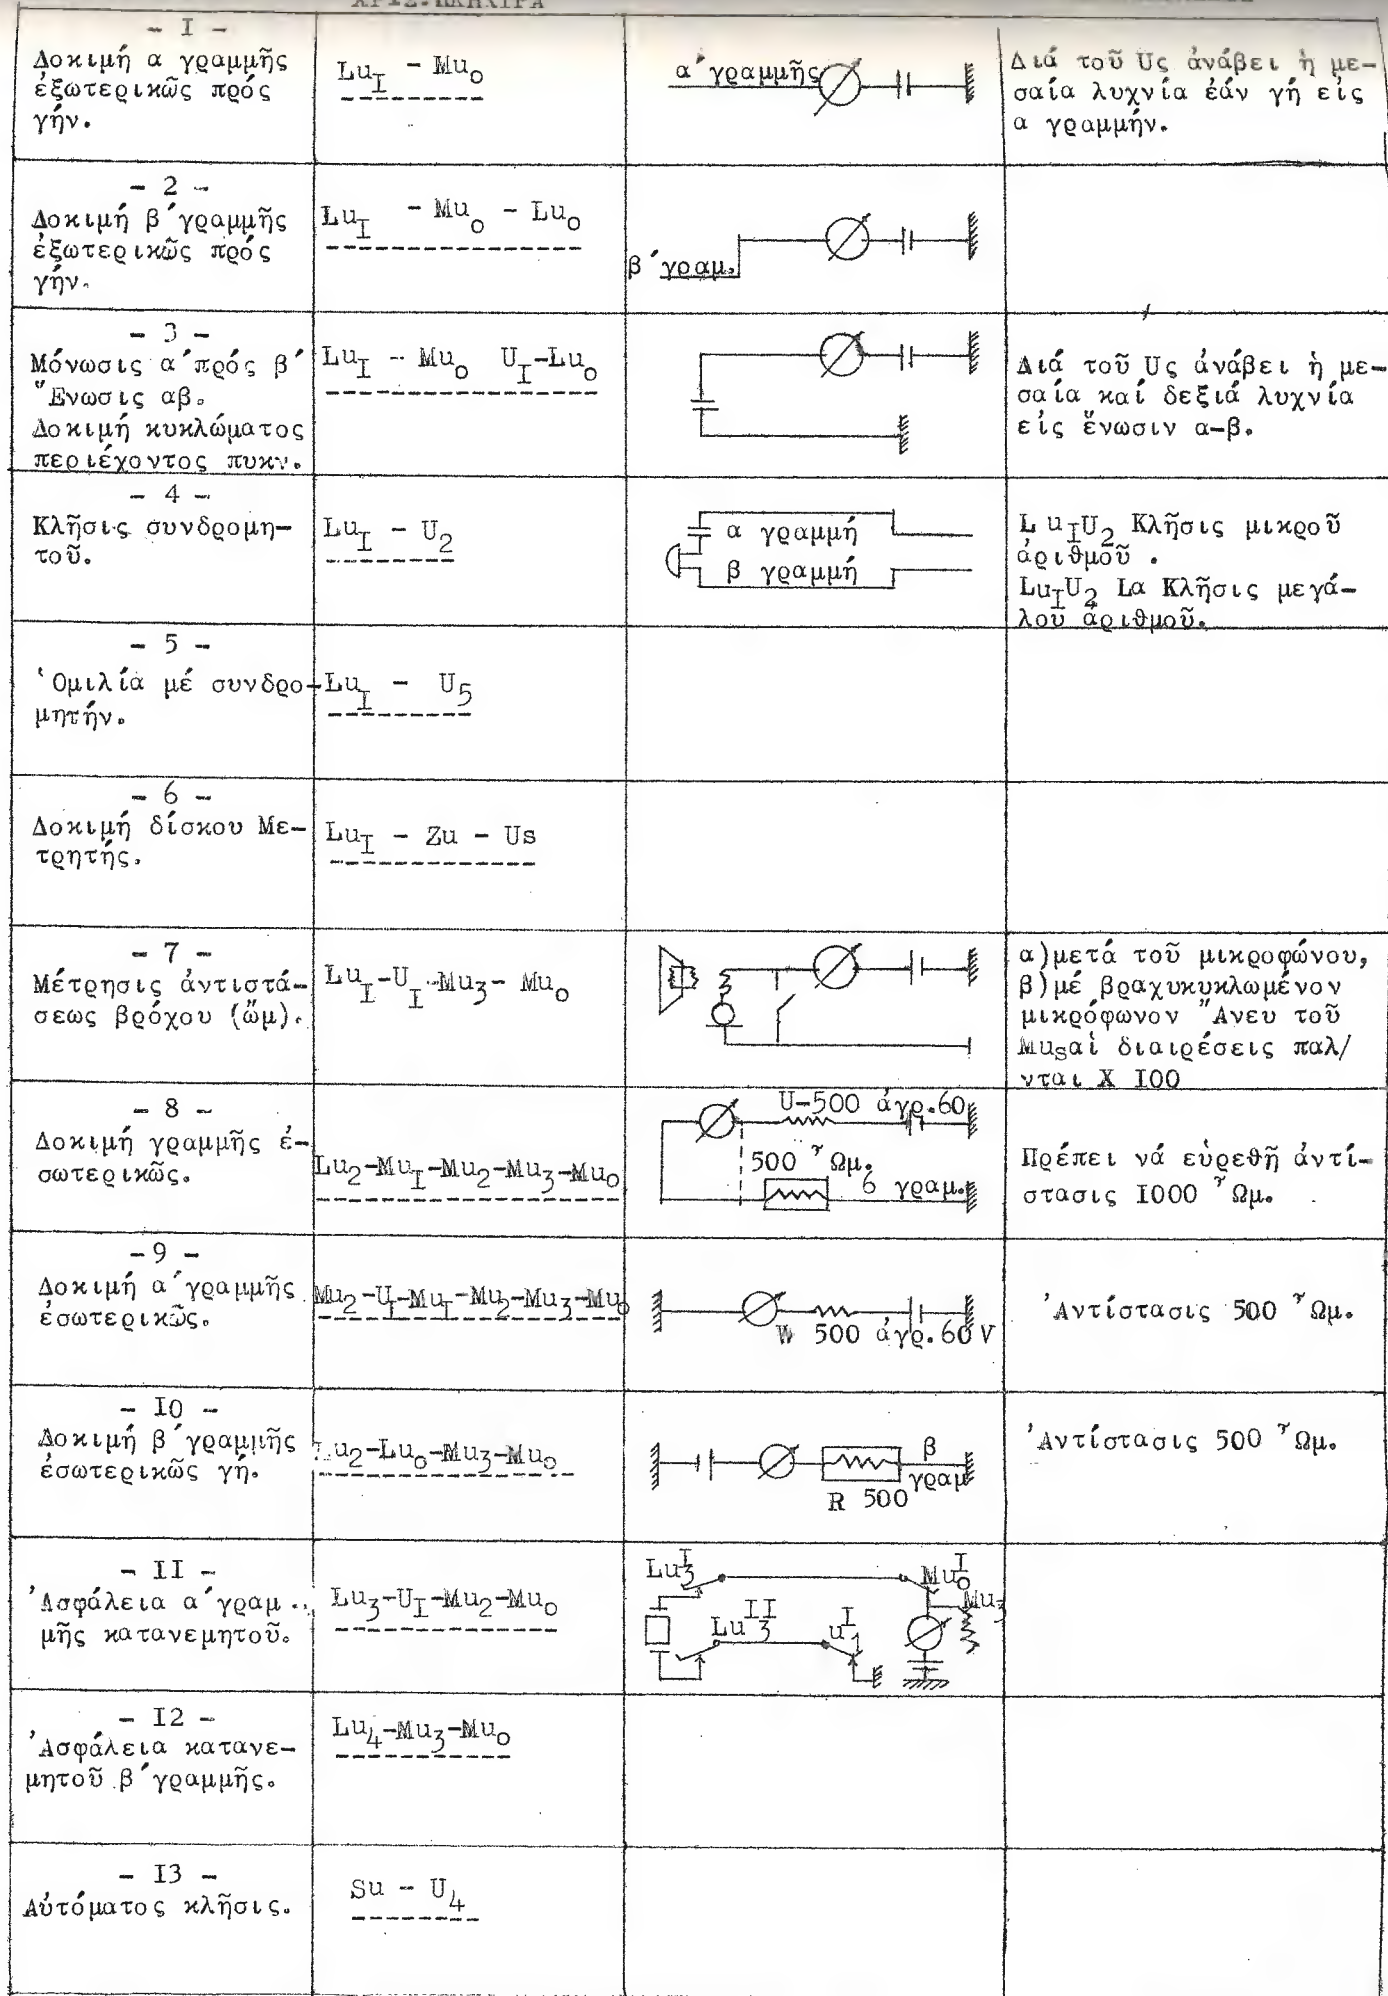 - I -
Δοκιμή α γραμμῆς
ἐξωτερικῶς πρός
γήν.
Lu_I - Mu_o
α΄ γραμμῆς
Διά τοῦ Uς ἀνάβει ἡ με-
σαία λυχνία ἐάν γή εἰς
α γραμμήν.
- 2 -
Δοκιμή β΄γραμμῆς
ἐξωτερικῶς πρός
γήν.
Lu_I - Mu_o - Lu_o
β΄γραμ.
- 3 -
Μόνωσις α΄πρός β΄
Ἕνωσις αβ.
Δοκιμή κυκλώματος
περιέχοντος πυκν.
Lu_I - Mu_o U_I-Lu_o
Διά τοῦ Uς ἀνάβει ἡ με-
σαία καί δεξιά λυχνία
εἰς ἕνωσιν α-β.
- 4 -
Κλῆσις συνδρομη-
τοῦ.
Lu_I - U_2
α γραμμή
β γραμμή
L u_IU_2 Κλῆσις μικροῦ
ἀριθμοῦ .
Lu_IU_2 Lα Κλῆσις μεγά-
λοῦ ἀριθμοῦ.
- 5 -
Ὁμιλία μέ συνδρο-
μητήν.
Lu_I - U_5
- 6 -
Δοκιμή δίσκου Με-
τρητής.
Lu_I - Zu - Us
- 7 -
Μέτρησις ἀντιστά-
σεως βρόχου (ὤμ).
Lu_I-U_I-Mu_3- Mu_o
α)μετά τοῦ μικροφώνου,
β)μέ βραχυκυκλωμένον
μικρόφωνον Ἄνευ τοῦ
Mu_sαἱ διαιρέσεις παλ/
νται X I00
- 8 -
Δοκιμή γραμμῆς ἐ-
σωτερικῶς.
Lu_2-Mu_I-Mu_2-Mu_3-Mu_o
U-500 ἀγρ.60
500 Ὦμ.
6 γραμ.
Πρέπει νά εὑρεθῆ ἀντί-
στασις I000 Ὦμ.
-9 -
Δοκιμή α΄γραμμῆς
ἐσωτερικῶς.
Mu_2-U_I-Mu_I-Mu_2-Mu_3-Mu_o
W 500 ἀγρ.60 V
Ἀντίστασις 500 Ὦμ.
- I0 -
Δοκιμή β΄γραμμῆς
ἐσωτερικῶς γή.
Lu_2-Lu_o-Mu_3-Mu_o
β
γραμ
R 500
Ἀντίστασις 500 Ὦμ.
- II -
Ἀσφάλεια α΄γραμ-
μῆς κατανεμητοῦ.
Lu_3-U_I-Mu_2-Mu_o
Lu_3^I
Mu_o^I
Mu_3
Lu_3^II
u_1^I
- I2 -
Ἀσφάλεια κατανε-
μητοῦ β΄γραμμῆς.
Lu_4-Mu_3-Mu_o
- I3 -
Αὐτόματος κλῆσις.
Su - U_4